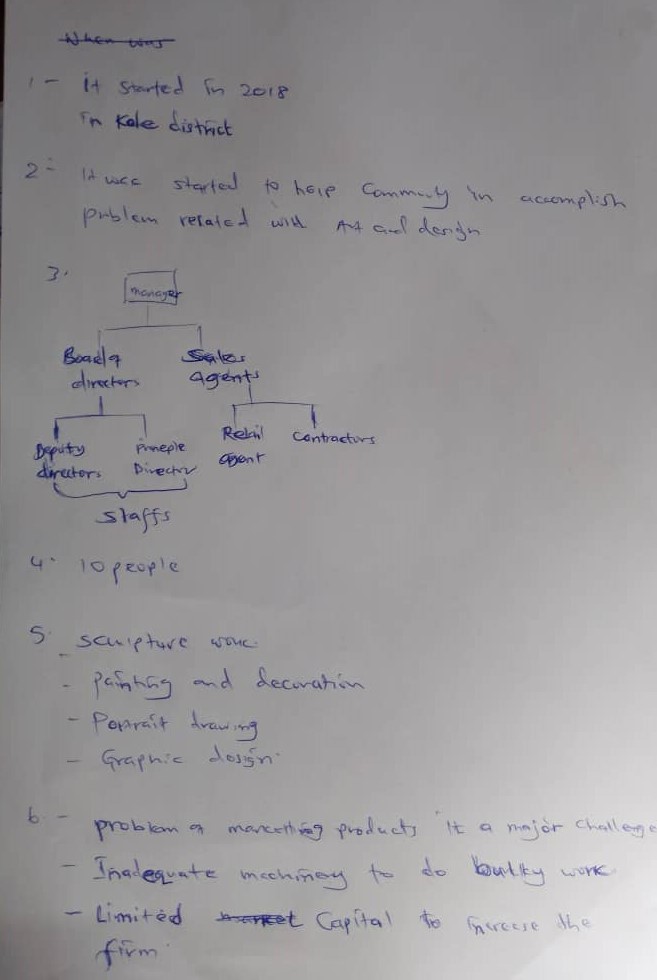 When was
1 - it started in 2018
in Kole district
2 - It was started to help Commuty in accomplish
problem related with Art and design
3.
manager
Board of Sales
directors Agents
Deputy Principle Retail Contractors
directors Director agent
staffs
4. 10 people
5. sculpture work
- painting and decoration
- Portrait drawing
- Graphic design.
6 - problem of marketting products it a major challenge
- Inadequate machinery to do bulky work
- Limited market Capital to increase the
firm.